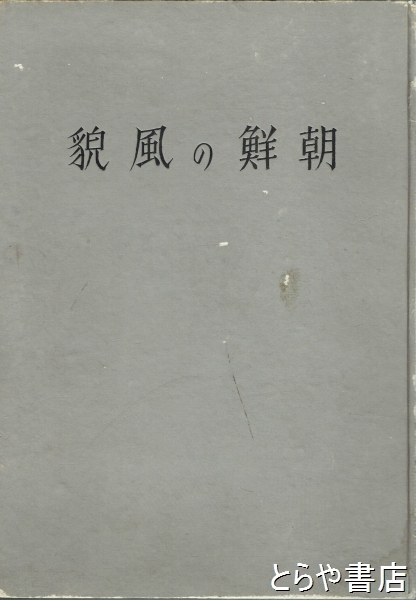 朝鮮の風貌
とらや書店